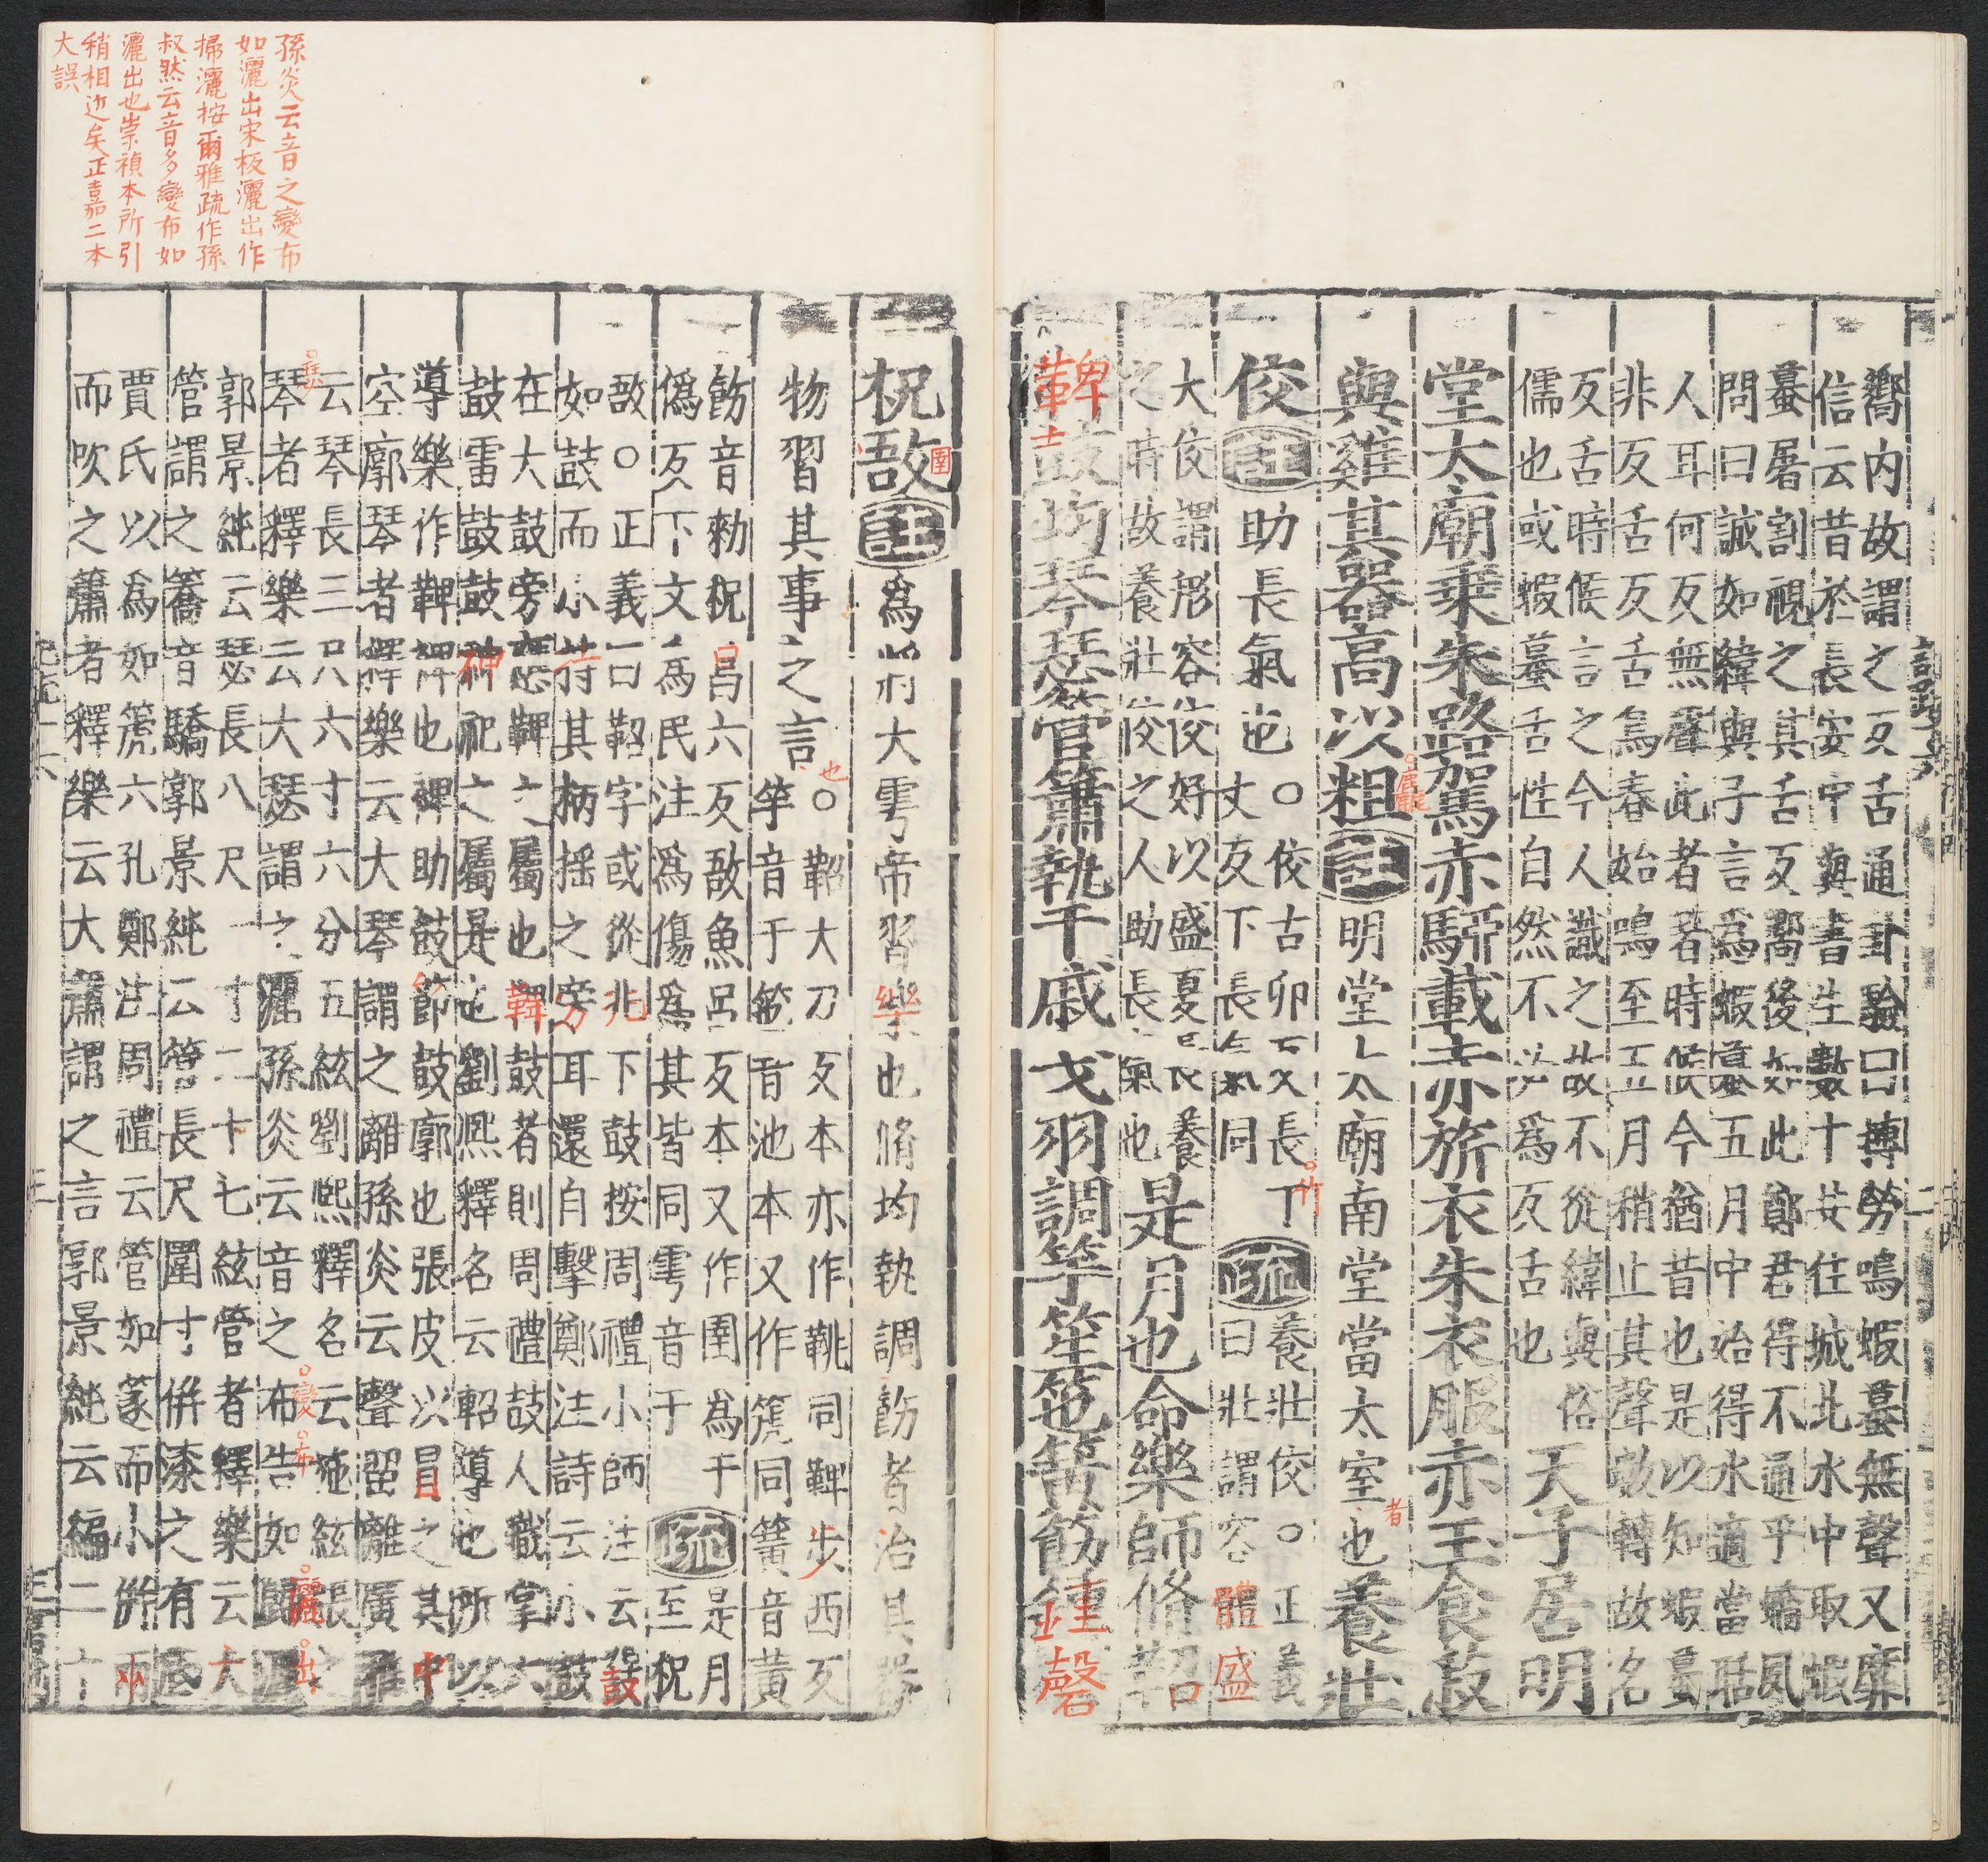 嚮内故謂之反舌通卦驗曰搏勞鳴蝦蟇無聲又靡
信云昔於長安中與書生數十共往城北水中取蝦
蟇屠割視之其舌反嚮後如此鄭君得不通乎矯鳳
問曰誠如緯與子言爲蝦蟇五月中始得水適當聒
人耳何反無聲此者著時候今猶昔也是以知蝦蟇
非反舌反舌鳥春始鳴至五月稍止其聲數轉故名
反舌時候言之今人識之故不從緯與俗
儒也或蝦蟇舌性自然不必爲反舌也
天子居明
堂太廟乗朱路駕赤駵載赤旂衣朱衣服赤玉食菽
與雞其器高以粗註明堂太廟南堂當太室也養壯
者
佼註助長氣也○佼古卯反又長丁
丈反下長氣同
疏養壯佼○正義
曰壯謂容體盛
大佼謂形容佼好以盛夏長養
之時故養壯佼之人助長氣也
是月也命樂師脩鞀
鞞鼓均琴瑟管簫執干戚戈羽調竽笙竾簧飭鍾磬
柷敔註爲將大雩帝習樂也脩均執調飭者治其器
圉
物習其事之言也○鞀大刀反本亦作鞉同鞞步西反
竽音于竾音池本又作箎同簧音黄
飭音勑柷昌六反敔魚呂反本又作圉爲于
僞反下文爲民注爲傷爲其皆同雩音于
疏是月
至柷
敔○正義曰鞀字或從兆下鼓按周禮小師注云鼗
如鼓而小持其柄摇之旁耳還自擊鄭注詩云小鼓
在大鼓旁應鞞之屬也鞞鼓者則周禮鼓人職掌六
鼓雷鼓鼓神祀之屬是也劉熙釋名云鞀導也所以
導樂作鞞裨也裨助鼓節鼓廓也張皮以冒之其中
空廓琴者釋樂云大琴謂之離孫炎云聲留離廣雅
云琴長三尺六寸六分五絃劉熙釋名云施絃張之
琴者釋樂云大瑟謂之灑孫炎云音之布告如
郭景純云瑟長八尺一寸二十七絃管者釋樂云大
管謂之簥音驕郭景純云管長尺圍寸併漆之有底
賈氏以爲如箎六孔鄭注周禮云管如篴而小併兩
而吹之簫者釋樂云大簫謂之言郭景純云編二十
孫炎云音之變布
如灑出宋板灑出作
掃灑按爾雅疏作孫
叔然云音多變布如
灑出也崇禎本所引
稍相近矣正嘉二本
大誤